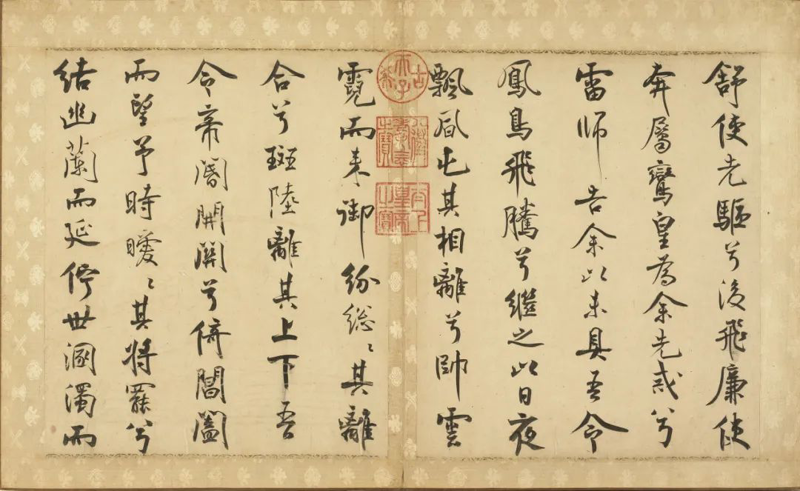 舒使先驅兮後飛廉使
奔屬鸞皇為余先戒兮
雷師告余以未具吾令
鳳鳥飛騰兮繼之以日夜
飄風屯其相離兮帥雲
霓而来御紛総々其離
合兮斑陸離其上下吾
令帝閽開關兮倚閶闔
而望予時曖々其將罷兮
結幽蘭而延佇世溷濁而
古希天子
八徵耄念之寶
太上皇帝之寶